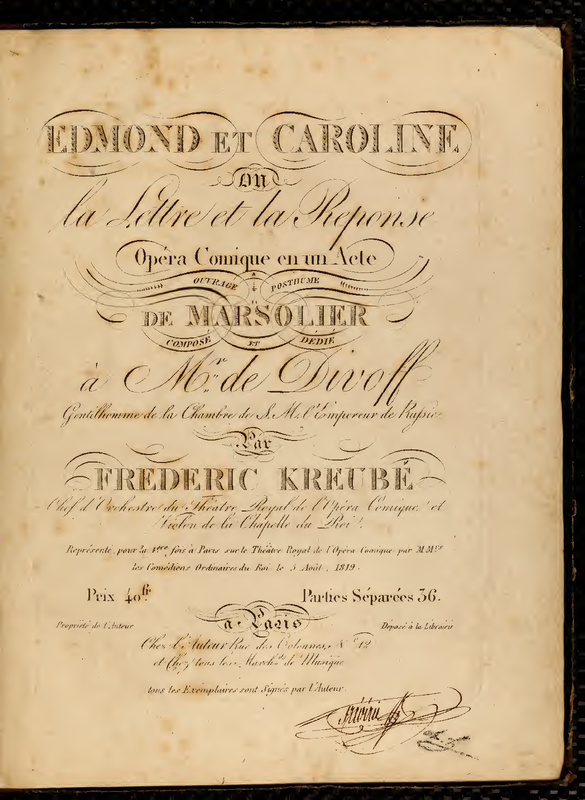 EDMOND ET CAROLINE
OU
la Lettre et la Reponse
Opéra Comique en un Acte
OUVRAGE POSTHUME
DE MARSOLIER
COMPOSÉ ET DÉDIÉ
à Mr. de Divoff
Gentilhomme de la Chambre de S. M. l'Empereur de Russie
Par
FREDERIC KREUBÉ
Chef d'Orchestre du Théâtre Royal de l'Opéra Comique et
Violon de la Chapelle du Roi.
Représenté pour la 1ere fois à Paris sur le Théâtre Royal de l'Opéra Comique par MMrs
les Comédiens Ordinaires du Roi le 5 Août, 1819.
Prix 40fr. Parties Séparées 36.
à Paris
Propriété de l'Auteur Déposé à la Librairie
Chez l'Auteur Rue des Colonnes, No. 12
et Chez tous les Marchds de Musique
tous les Exemplaires sont Signés par l'Auteur